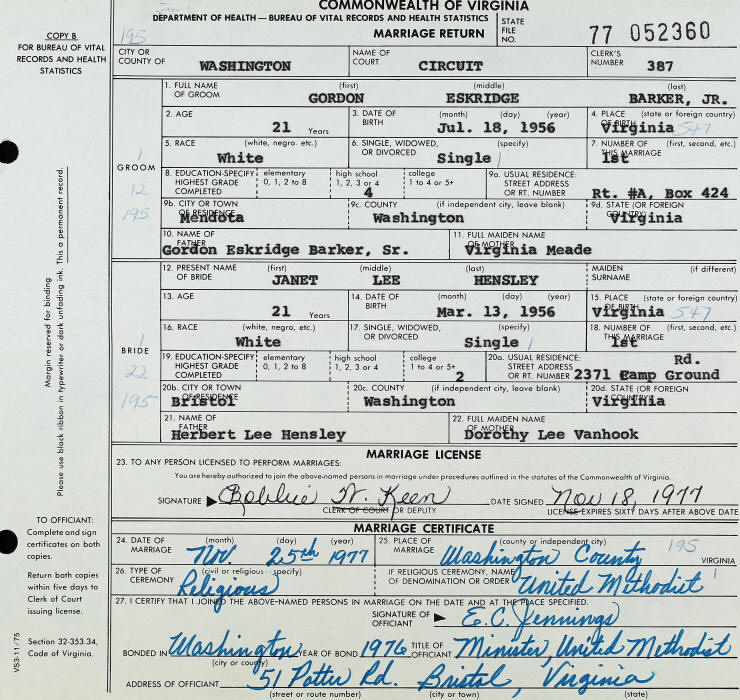 COMMONWEALTH OF VIRGINIA
DEPARTMENT OF HEALTH — BUREAU OF VITAL RECORDS AND HEALTH STATISTICS
COPY B
FOR BUREAU OF VITAL
RECORDS AND HEALTH
STATISTICS
195
MARRIAGE RETURN
STATE FILE NO. 77 052360
CITY OR COUNTY OF WASHINGTON
NAME OF COURT CIRCUIT
CLERK'S NUMBER 387
GROOM
1
12
195
1. FULL NAME OF GROOM (first) GORDON (middle) ESKRIDGE (last) BARKER, JR.
2. AGE 21 Years
3. DATE OF BIRTH (month) (day) (year) Jul. 18, 1956
4. PLACE OF BIRTH (state or foreign country) Virginia 547
5. RACE (white, negro, etc.) White
6. SINGLE, WIDOWED, OR DIVORCED (specify) Single 1
7. NUMBER OF THIS MARRIAGE (first, second, etc.) 1st
8. EDUCATION-SPECIFY HIGHEST GRADE COMPLETED elementary 0, 1, 2 to 8 high school 1, 2, 3 or 4 4 college 1 to 4 or 5+
9a. USUAL RESIDENCE: STREET ADDRESS OR RT. NUMBER Rt. #A, Box 424
9b. CITY OR TOWN OF RESIDENCE Mendota
9c. COUNTY (if independent city, leave blank) Washington
9d. STATE (OR FOREIGN COUNTRY) Virginia
10. NAME OF FATHER Gordon Eskridge Barker, Sr.
11. FULL MAIDEN NAME OF MOTHER Virginia Meade
BRIDE
1
22
195
12. PRESENT NAME OF BRIDE (first) JANET (middle) LEE (last) HENSLEY
MAIDEN SURNAME (if different)
13. AGE 21 Years
14. DATE OF BIRTH (month) (day) (year) Mar. 13, 1956
15. PLACE OF BIRTH (state or foreign country) Virginia 547
16. RACE (white, negro, etc.) White
17. SINGLE, WIDOWED, OR DIVORCED (specify) Single 1
18. NUMBER OF THIS MARRIAGE (first, second, etc.) 1st
19. EDUCATION-SPECIFY HIGHEST GRADE COMPLETED elementary 0, 1, 2 to 8 high school 1, 2, 3 or 4 college 1 to 4 or 5+ 2
20a. USUAL RESIDENCE: STREET ADDRESS OR RT. NUMBER 2371 Camp Ground Rd.
20b. CITY OR TOWN OF RESIDENCE Bristol
20c. COUNTY (if independent city, leave blank) Washington
20d. STATE (OR FOREIGN COUNTRY) Virginia
21. NAME OF FATHER Herbert Lee Hensley
22. FULL MAIDEN NAME OF MOTHER Dorothy Lee Vanhook
MARRIAGE LICENSE
23. TO ANY PERSON LICENSED TO PERFORM MARRIAGES:
You are hereby authorized to join the above-named persons in marriage under procedures outlined in the statutes of the Commonwealth of Virginia.
SIGNATURE Bobbie W. Keen DATE SIGNED Nov 18, 1977
CLERK OF COURT OR DEPUTY LICENSE EXPIRES SIXTY DAYS AFTER ABOVE DATE
MARRIAGE CERTIFICATE
24. DATE OF MARRIAGE (month) (day) (year) Nov. 25th 1977
25. PLACE OF MARRIAGE (county or independent city) Washington County 195 VIRGINIA
26. TYPE OF CEREMONY (civil or religious - specify) Religious
IF RELIGIOUS CEREMONY, NAME OF DENOMINATION OR ORDER United Methodist 1
27. I CERTIFY THAT I JOINED THE ABOVE-NAMED PERSONS IN MARRIAGE ON THE DATE AND AT THE PLACE SPECIFIED.
SIGNATURE OF OFFICIANT E.C. Jennings
BONDED IN Washington (city or county) YEAR OF BOND 1976 TITLE OF OFFICIANT Minister, United Methodist
ADDRESS OF OFFICIANT 51 Potter Rd. Bristol, Virginia
(street or route number) (city or town) (state)
Margin reserved for binding
Please use black ribbon in typewriter or dark unfading ink. This a permanent record.
TO OFFICIANT:
Complete and sign
certificates on both
copies.
Return both copies
within five days to
Clerk of Court
issuing license.
Section 32-353.34,
Code of Virginia.
VS3-11/75